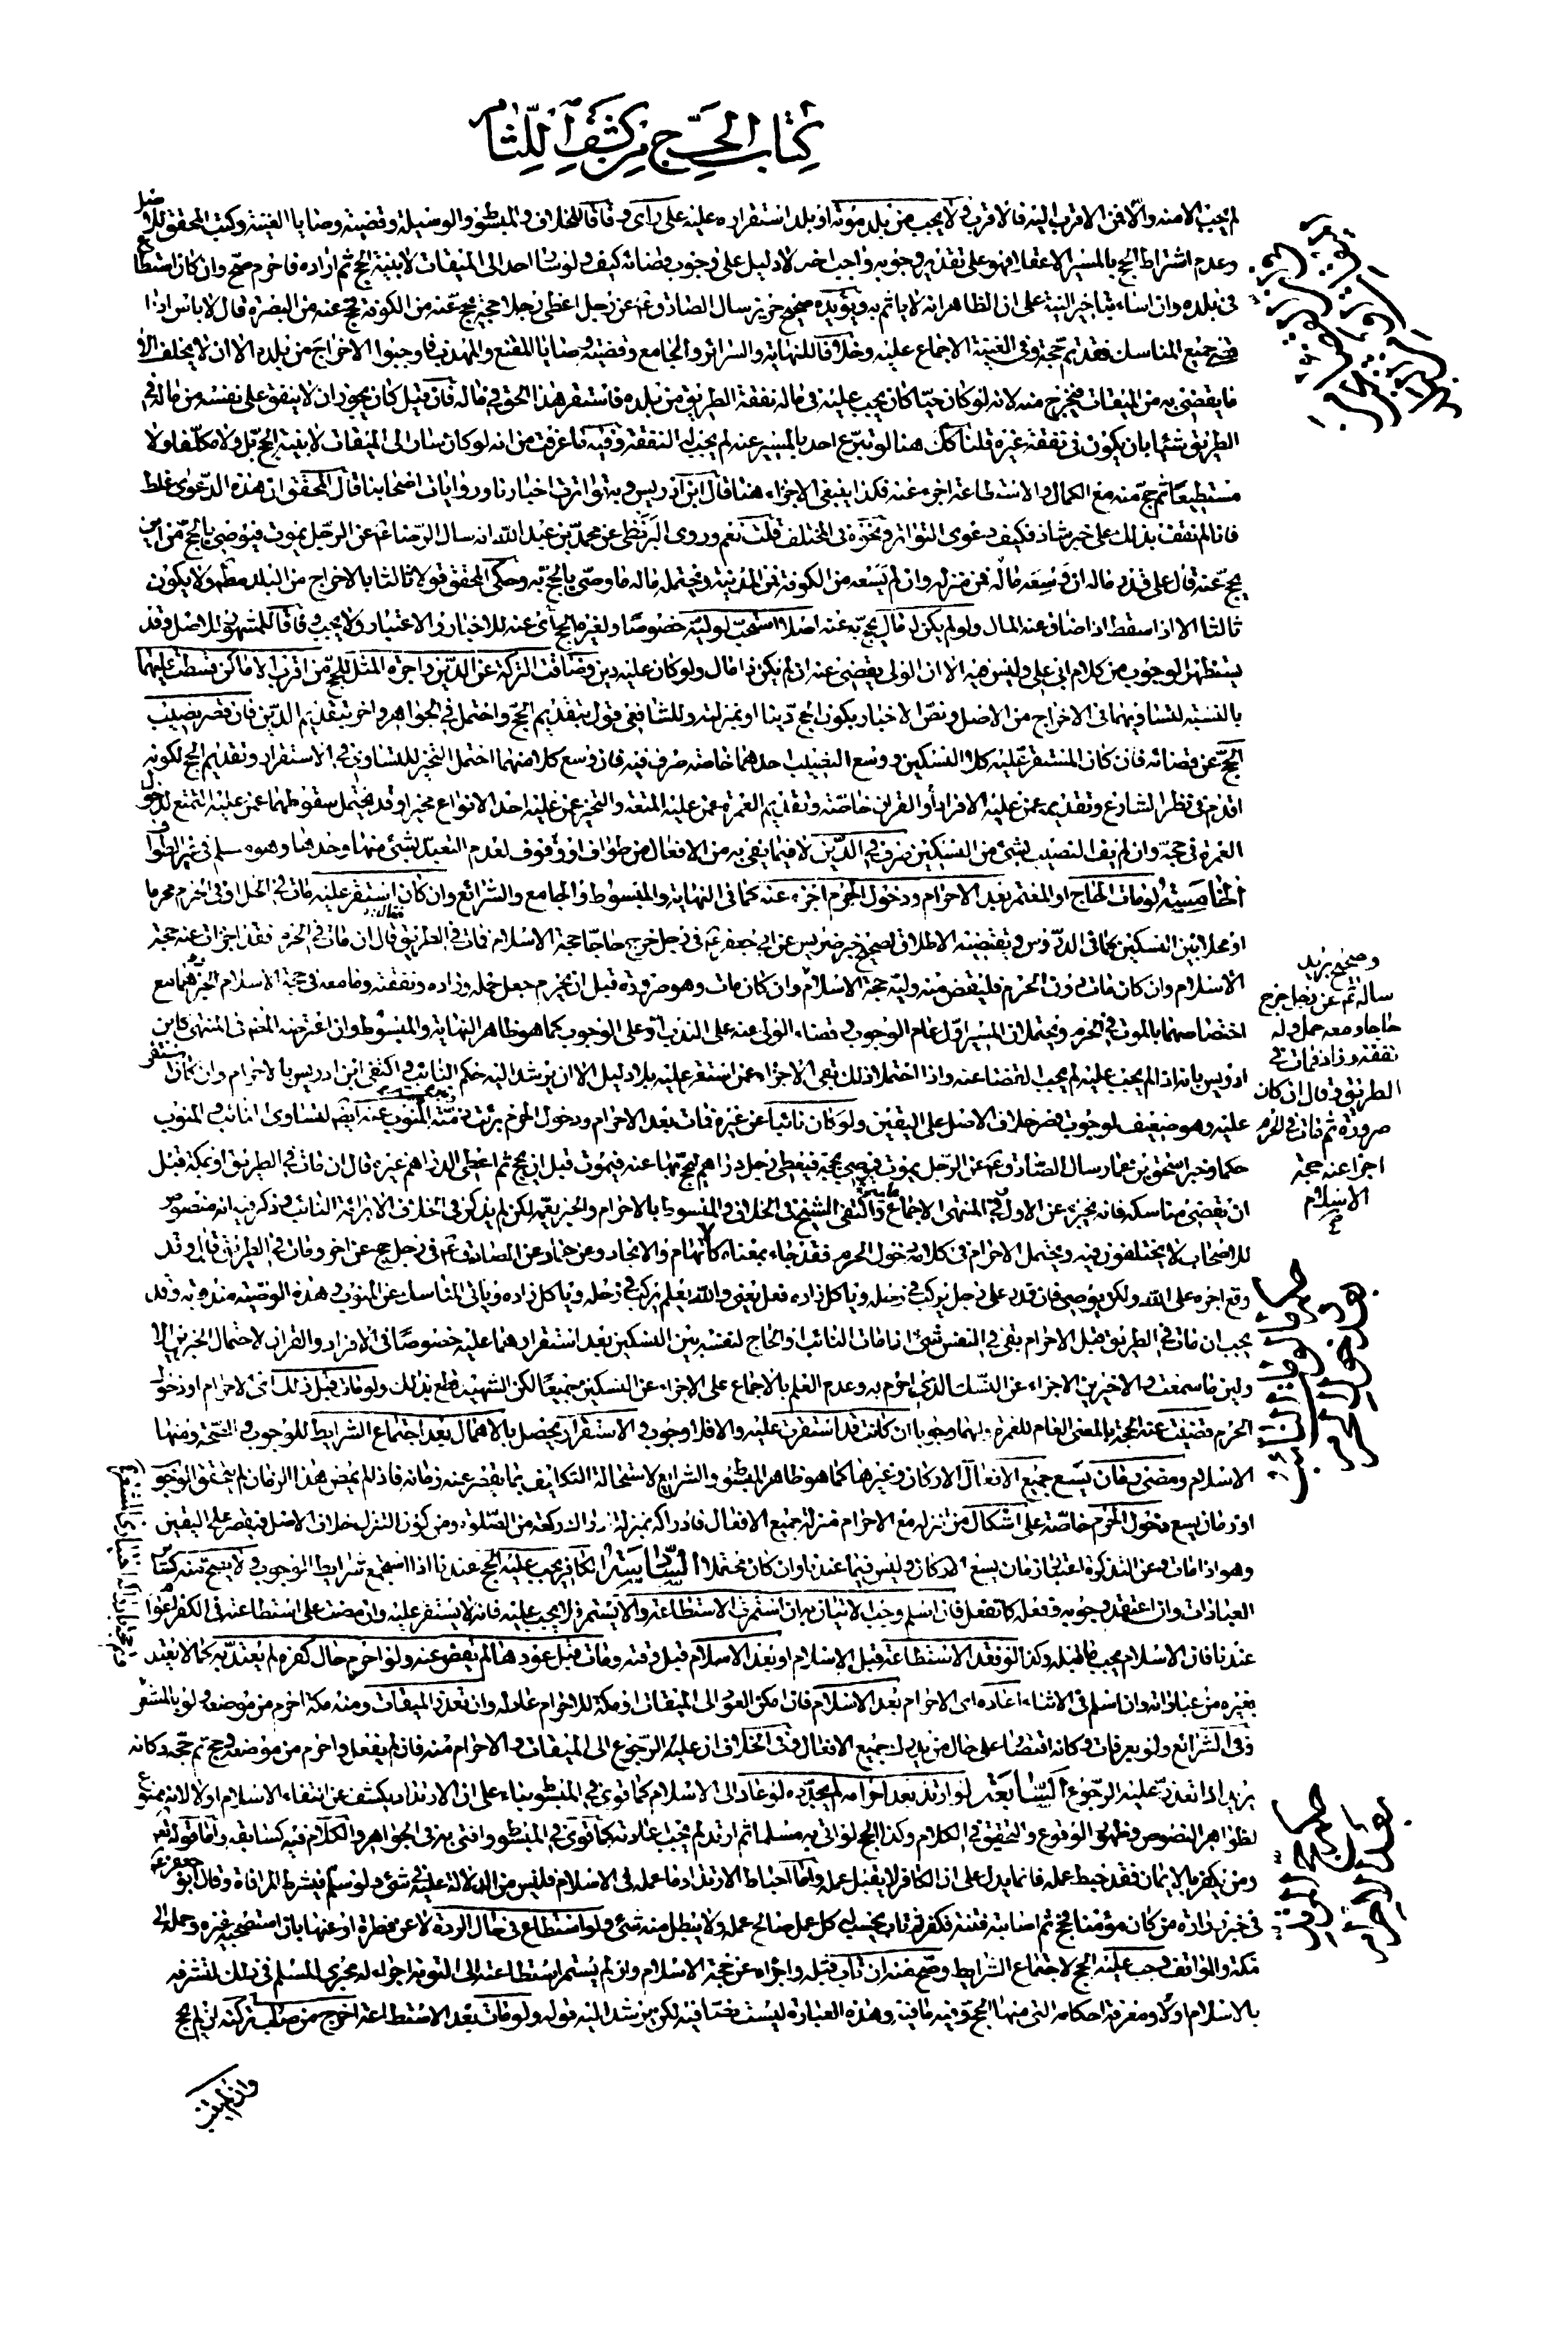 كتاب الحج من كشف اللثام
لم يجب الا منه والّا فمن الاقرب اليه فالاقرب ولا يجب من بلد موته او بلد استقراره عليه على راى وفاقا للخلاف والمبسوط والوسيلة وقضية وصايا الغنية وكتب المحقق للاصل
وعدم اشتراط الحج بالمسير الا عقلا فهو على تقدير وجوبه واجب اخر لا دليل على وجوب قضائه كيف ولو سافر احد الى الميقات لا بنية الحج ثم اراده فاحرم صحّ وان كان استطاع
فى بلده وان اساء بتاخير النية على ان الظاهر انه لا ياثم به ويؤيده صحيح حريز سال الصادق ع عن رجل اعطى رجلا حجة يحج عنه من الكوفة فحج عنه من البصرة قال لا باس اذا
قضى جميع المناسك فقد تم حجه وفى الغنية الاجماع عليه وخلافا للنهاية والسرائر والجامع وقضية وصايا المقنع والمهذب فاوجبوا الاخراج من بلده الا ان لا يخلف الا
ما يقضى به من الميقات فيخرج منه لانه لو كان حيّا كان يجب عليه فى ماله نفقة الطريق من بلده فاستقر هذا الحق فى ماله فان قيل كان يجوز ان لا ينفق على نفسه من ماله فى
الطريق شيئا بان يكون فى نفقة غيره قلنا كك هنا لو تبرع احد بالمسير عنه لم يجب النفقة وفيه ما عرفت من انه لو كان سار الى الميقات لا بنية الحج بل ولا مكلّفا ولا
مستطيعا ثم حج منه مع الكمال والاستطاعة اجزء عنه فكذا ينبغى الاجزاء هنا قال ابن ادريس وبه تواترت اخبارنا وروايات اصحابنا قال المحقق ان هذه الدعوى غلط
فانا لم نقف بذلك على خبر شاذ فكيف دعوى التواتر ونحوه فى المختلف قلت نعم وروى البزنطى عن محمد بن عبد الله انه سال الرضا ع عن الرجل يموت فيوصى بالحج من اين
يحج عنه قال على قدر ماله ان وسعه ماله فمن منزله وان لم يسعه من الكوفة فمن المدينة ويحتمل ماله ما وصّى بالحج به وحكى المحقق قولا ثالثا بالاخراج من البلد مطلقا ولا يكون
ثالثا الا اذا سقط اذا ضاق عنه المال ولو لم يكن له مال يحج به عنه اصلا استحب لوليه خصوصا ولغيره الحج اى عنه للاخبار والاعتبار ولا يجب وفاقا للمشهور للاصل وقد
يستظهر الوجوب من كلام ابى على وليس فيه الا ان الولى يقضى عنه ان لم يكن ذا مال ولو كان عليه دين وضاقت التركة عن الدين واجرة المثل للحج من اقرب الاماكن قسطت عليهما
بالنسبة لتساويهما فى الاخراج من الاصل ونصّ الاخبار بكون الحج دينا او بمنزلته وللشافعى قول بتقديم الحج واحتمل فى الجواهر واخر بتقديم الدين فان قصر نصيب
الحج عن قضائه فان كان المستقر عليه كلا النسكين ووسع النصيب احدهما خاصة صرف فيه فان وسع كلا منهما احتمل التخيير للتساوى فى الاستقرار وتقديم الحج لكونه
اقدم فى نظر الشارع وتقديمه عمن عليه الافراد او القران خاصة وتقديم العمرة عمن عليه المتعة والتخيير عمن عليه احد الانواع مخيرا وقد يحتمل سقوطهما عمن عليه التمتع لدخول
العمرة فى حجه وان لم يف النصيب بشئ من النسكين صرف فى الدين لا فيما يفى به من الافعال من طواف او وقوف لعدم التعبد بشئ منها وحدها وهو مسلم فى غير الطواف
الخامسة لو مات الحاج او المعتمر بعد الاحرام ودخول الحرم اجزء عنه كما فى النهاية والمبسوط والجامع والشرائع وان كان استقر عليه مات فى الحل او فى الحرم محرما
او محلا بين النسكين كما فى الدروس ويقتضيه الاطلاق لصحيح خبر ضريس عن ابى جعفر ع فى رجل خرج حاجّا حجة الاسلام فمات فى الطريق فقال ان مات فى الحرم فقد اجزات عنه حجة
الاسلام وان كان مات دون الحرم فليقض عنه وليه حجة الاسلام وان كان مات وهو صرورة قبل ان يحرم جعل جمله وزاده ونفقته وما معه فى حجة الاسلام
اختصاصهما بالموت فى الحرم ويحتملان المسير اوّل عام الوجوب وقضاء الولى عنه على الندب او على الوجوب كما هو ظاهر النهاية والمبسوط وان اعترضه المص فى المنتهى كابن
ادريس بانه اذا لم يجب عليه لم يجب القضاء عنه واذا احتملا ذلك بقى الاجزاء عمن استقر عليه بلا دليل الا ان يرشد اليه حكم النائب واكتفى ابن ادريس بالاحرام وان كان استقر
عليه وهو ضعيف لوجوب قصر خلاف الاصل على اليقين ولو كان نائبا عن غيره فمات بعد الاحرام ودخول الحرم برئت ذمته والمنوب عنه ايضا لتساوى النائب والمنوب
حكما وخبر اسحق بن عمار سال الصادق ع عن الرجل يموت فيوصى بحجة فيعطى رجل دراهم ليحج بها عنه فيموت قبل ان يحج ثم اعطى الدراهم غيره قال ان مات فى الطريق او بمكة قبل
ان يقضى مناسكه فانه يجزى عن الاول وفى المنتهى الاجماع واكتفى الشيخ فى الخلاف والمبسوط بالاحرام والخبر يعمّه لكن لم يذكر فى الخلاف الا براءة النائب وذكر فيه انه منصوص
للاصحاب لا يختلفون فيه ويحتمل الاحرام فى كلامه دخول الحرم فقد جاء بمعناه كاتهام والانجاد وعن عمار عن الصادق ع فى رجل حج عن اخر ومات فى الطريق قال وقد
وقع اجره على الله ولكن يوصى فان قدر على رجل يركب فى رحله وياكل زاده فعل يعنى والله يعلم يركب فى رحله وياكل زاده وياتى المناسك عن المنوب وهذه الوصية مندوبة وقد
يجب ان مات فى الطريق قبل الاحرام بقى فى النفس شئ اذا مات النائب او الحاج لنفسه بين النسكين بعد استقرارهما عليه خصوصا فى الافراد والقران لاحتمال الخبرين الاولين
ما سمعت والاخيرين الاجزاء عن النسك الذى احرم به وعدم العلم بالاجماع على الاجزاء عن النسكين جميعا لكن الشهيد قطع بذلك ولو مات قبل ذلك اى الاحرام او دخول
الحرم قضيت عنه الحجة بالمعنى العام للعمرة ولهما وجوبا ان كانت قد استقرت عليه والا فلا وجوب والاستقرار يحصل بالاهمال بعد اجتماع الشرايط للوجوب والصّحّة ومنها
الاسلام ومضى زمان يسع جميع الافعال الاركان وغيرها كما هو ظاهر المبسوط والشرايع لاستحالة التكليف بما يقصر عنه زمانه فاذا لم يمض هذا الزمان لم يتحقق الوجوب
او زمان يسع دخول الحرم خاصة على اشكال من تنزله مع الاحرام منزلة جميع الافعال فادراكه بمنزلة ادراك ركعة من الصلوة ومن كون التنزل خلاف الاصل فيقصر على اليقين
وهو اذا مات وعن التذكرة اعتبار زمان يسع الاركان وليس فيما عندنا وان كان محتملا السادسة الكافر يجب عليه الحج عندنا اذا استجمع شرايط الوجوب ولا يصح منه كسائر
العبادات وان اعتقد وجوبه وفعله كما نفعل فان اسلم وجب الاتيان به ان استمرت الاستطاعة والا يستمر فلا يجب عليه فانه لا يستقر عليه وان مضت على استطاعته فى الكفر اعوام
عندنا فان الاسلام يجب ما قبله وكذا لو فقد الاستطاعة قبل الاسلام او بعد الاسلام قبل وقته ومات قبل عودها لم يقض عنه ولو احرم حال كفره لم يعتد به كما لا يعتد
بغيره من عباداته وان اسلم فى الاثناء اعاده اى الاحرام بعد الاسلام فان امكن العود الى الميقات او مكة للاحرام عاد له وان تعذر الميقات ومنه مكة احرم من موضعه ولو بالمشعر
وفى الشرائع ولو بعرفات وكانه اقتصار على حال من يدرك جميع الافعال وفى الخلاف ان عليه الرجوع الى الميقات والاحرام منه فان لم يفعل واحرم من موضعه وحج تم حجه وكانه
يريد اذا تعذر عليه الرجوع السابعة لو ارتد بعد احرامه لم يجدده لو عاد الى الاسلام كما قوى فى المبسوط بناء على ان الارتداد يكشف عن انتفاء الاسلام اولا لانه ممنوع
لظواهر النصوص وظهور الوقوع والتحقق فى الكلام وكذا الحج لو اتى به مسلما ثم ارتد لم يجب اعادته كما قوى فى المبسوط وافتى به فى الجواهر والكلام فيه كسابقه واما قوله تع
ومن يكفر بالايمان فقد حبط عمله فانما يدل على ان الكافر لا يقبل عمله واما احباط الارتداد ما عمله فى الاسلام فليس من الدلالة عليه فى شئ ولو سلم فبشرط الموافاة وقال ابو جعفر ع
فى خبر زرارة من كان مؤمنا فحج ثم اصابته فتنة فكفر ثم تاب يحسب له كل عمل صالح عمله ولا يبطل منه شئ ولو استطاع فى حال الردة لا عن فطرة او عنها بان استصحبه غيره وحمله الى
مكة والمواقف وجب عليه الحج لاجتماع الشرايط وصح منه ان تاب قبله واجزاه عن حجة الاسلام وان لم يستمر استطاعته الى التوبة اجراء له مجرى المسلم فى ذلك لتشرفه
بالاسلام اولا ومعرفة احكامه التى منها الحج وفيه ما فيه وهذه العبارة ليست نصا فيه لكن يرشد اليه قوله ولو مات بعد الاستطاعة اخرج من صلب تركته ان لم يحج
وان لم يتب
وصحيح بريد
ساله ع عن رجل خرج
حاجا ومعه جمل وله
نفقة وزاد فمات فى
الطريق قال ان كان
صرورة ثم مات فى الحرم
اجزا عنه حجة
الاسلام